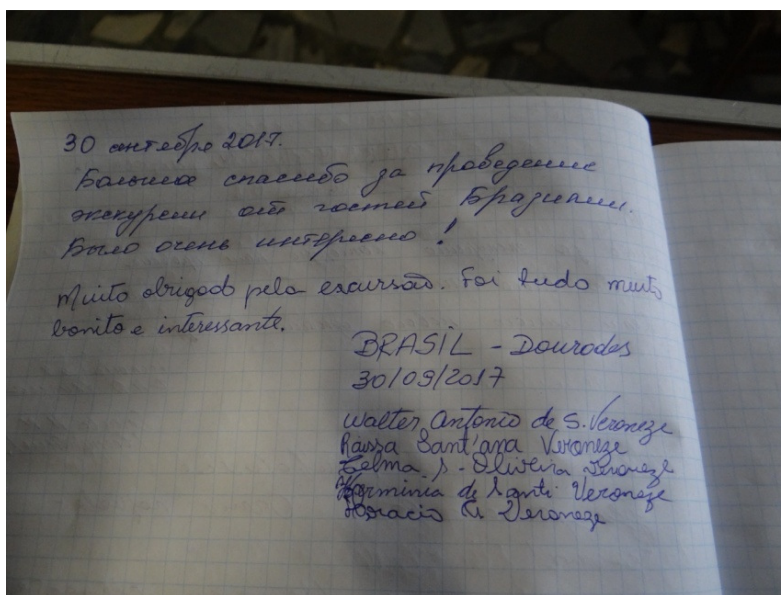 30 сентября 2017.
Большое спасибо за проведение
экскурсии от гостей Бразилии.
Было очень интересно!
Muito obrigado pela excursão. Foi tudo muito
bonito e interessante.
BRASIL - Dourados
30/09/2017
Walter Antonio de S. Veroneze
Raissa Sant'ana Veroneze
Telma S. Oliveira Veroneze
Herminia de Santi Veroneze
Horacio Veroneze